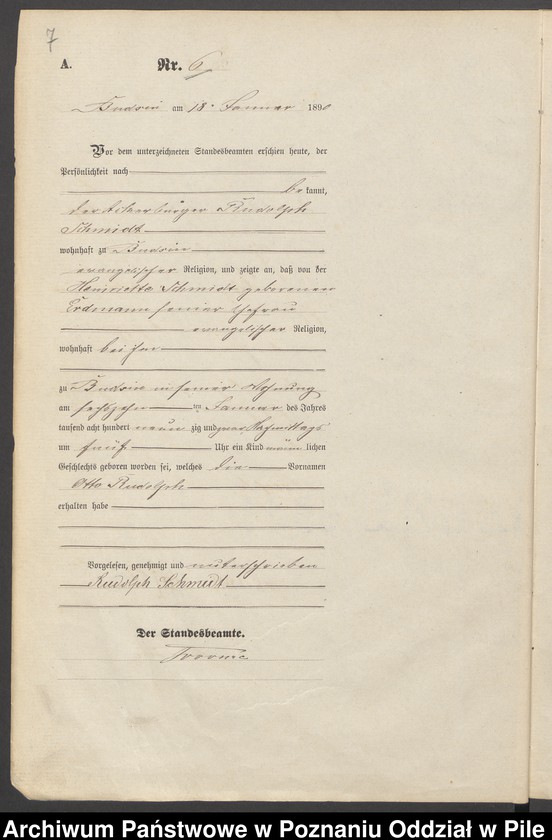 7
A. Nr. 6
am 18. Januar 1890
Vor dem unterzeichneten Standesbeamten erschien heute, der
Persönlichkeit nach
bekannt,
der Ackerbürger Rudolph
Schmidt
wohnhaft zu
evangelischer Religion, und zeigte an, daß von der
Henriette Schmidt geborenen
Erdmann seiner Ehefrau
evangelischer Religion,
wohnhaft bei ihm
zu in seiner Wohnung
am sechszehnten Januar des Jahres
tausend acht hundert neunzig und zwar Nachmittags
um fünf Uhr ein Kind männlichen
Geschlechts geboren worden sei, welches die Vornamen
Otto Rudolph
erhalten habe
Vorgelesen, genehmigt und unterschrieben
Rudolph Schmidt
Der Standesbeamte.
Archiwum Państwowe w Poznaniu Oddział w Pile